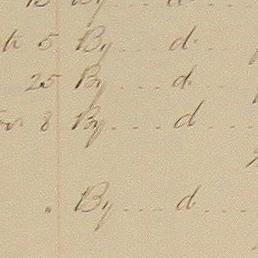 By .... d.
5 By .... d.
25 By .... d.
8 By .... d
" By .... d ....